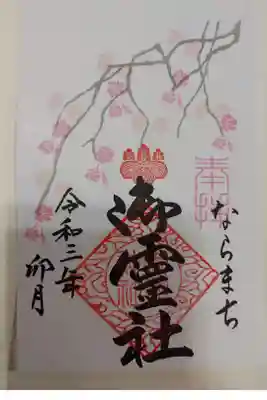 奉拝
ならまち
御霊社
令和三年
卯月